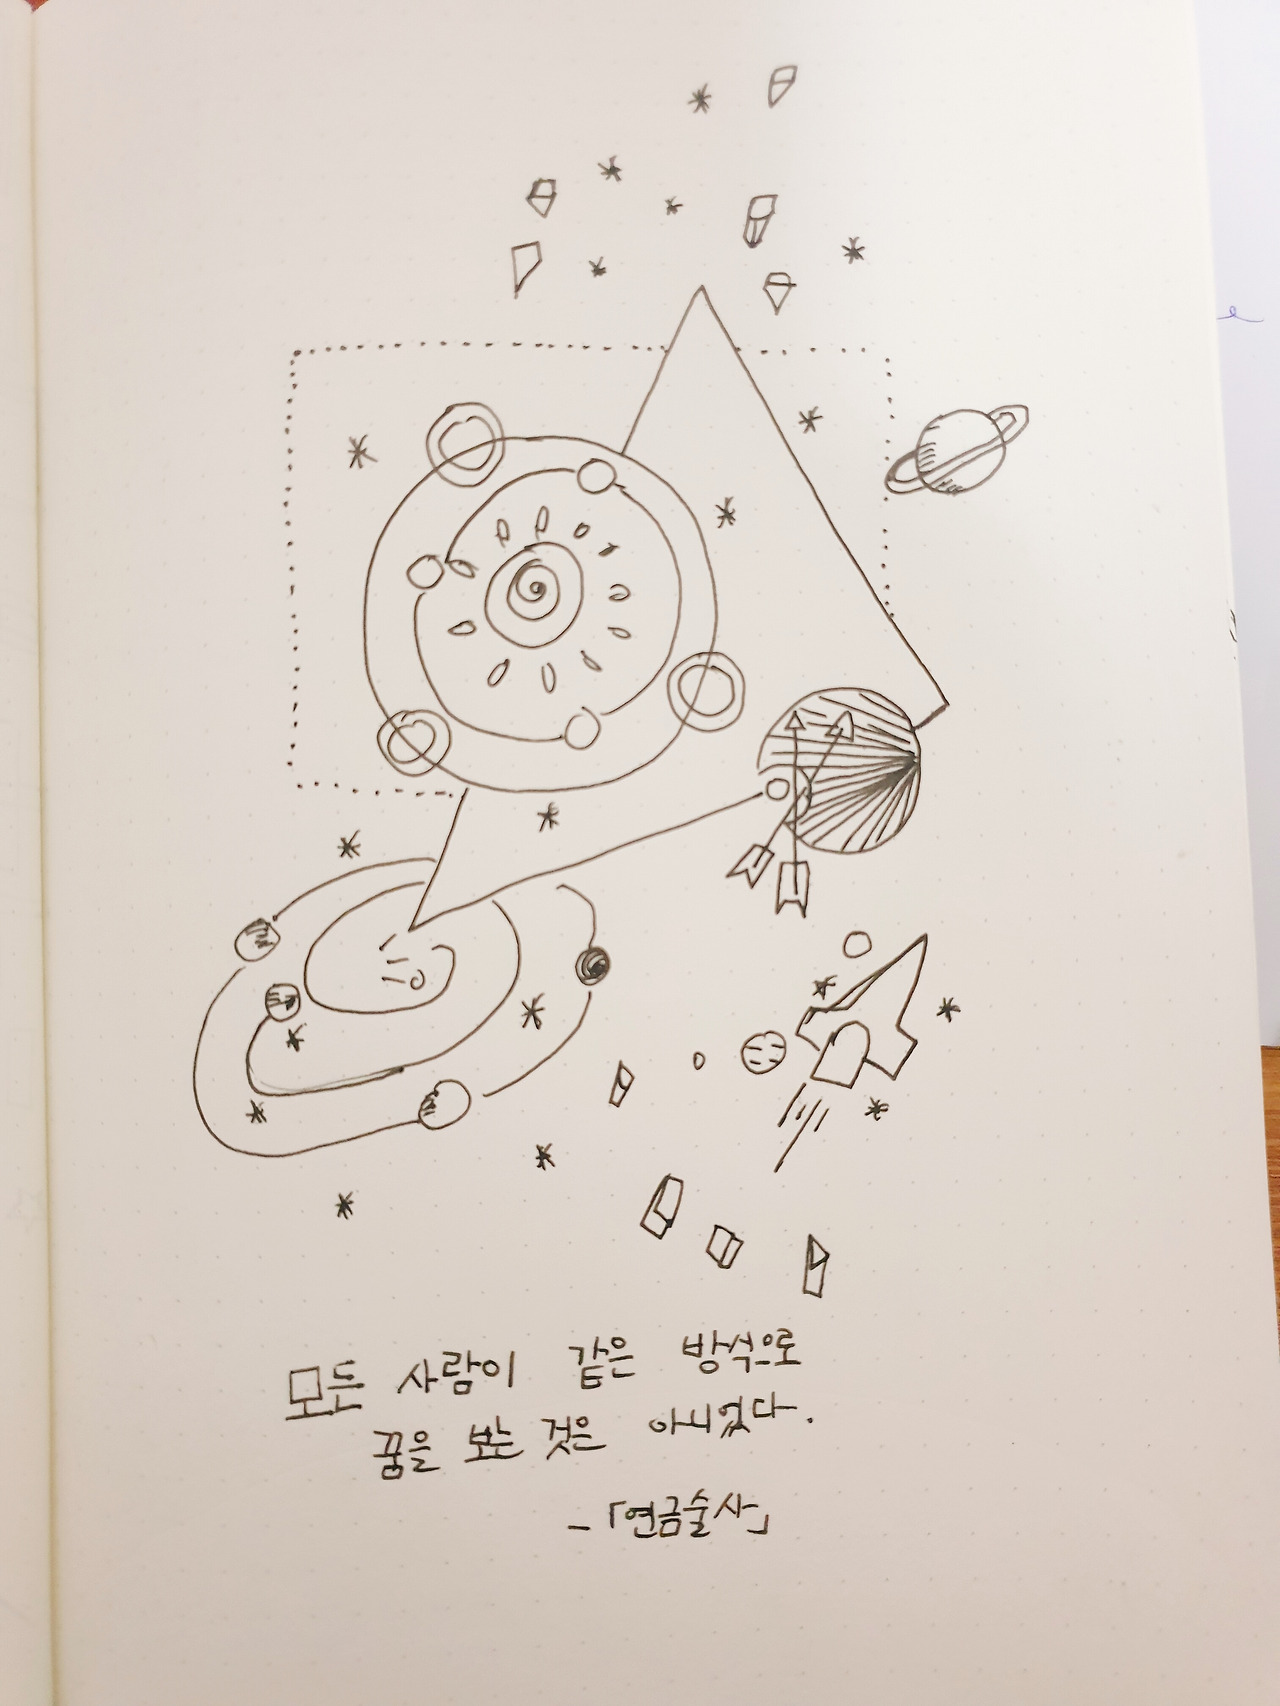 모든 사람이 같은 방식으로
꿈을 보는 것은 아니었다.
-「연금술사」